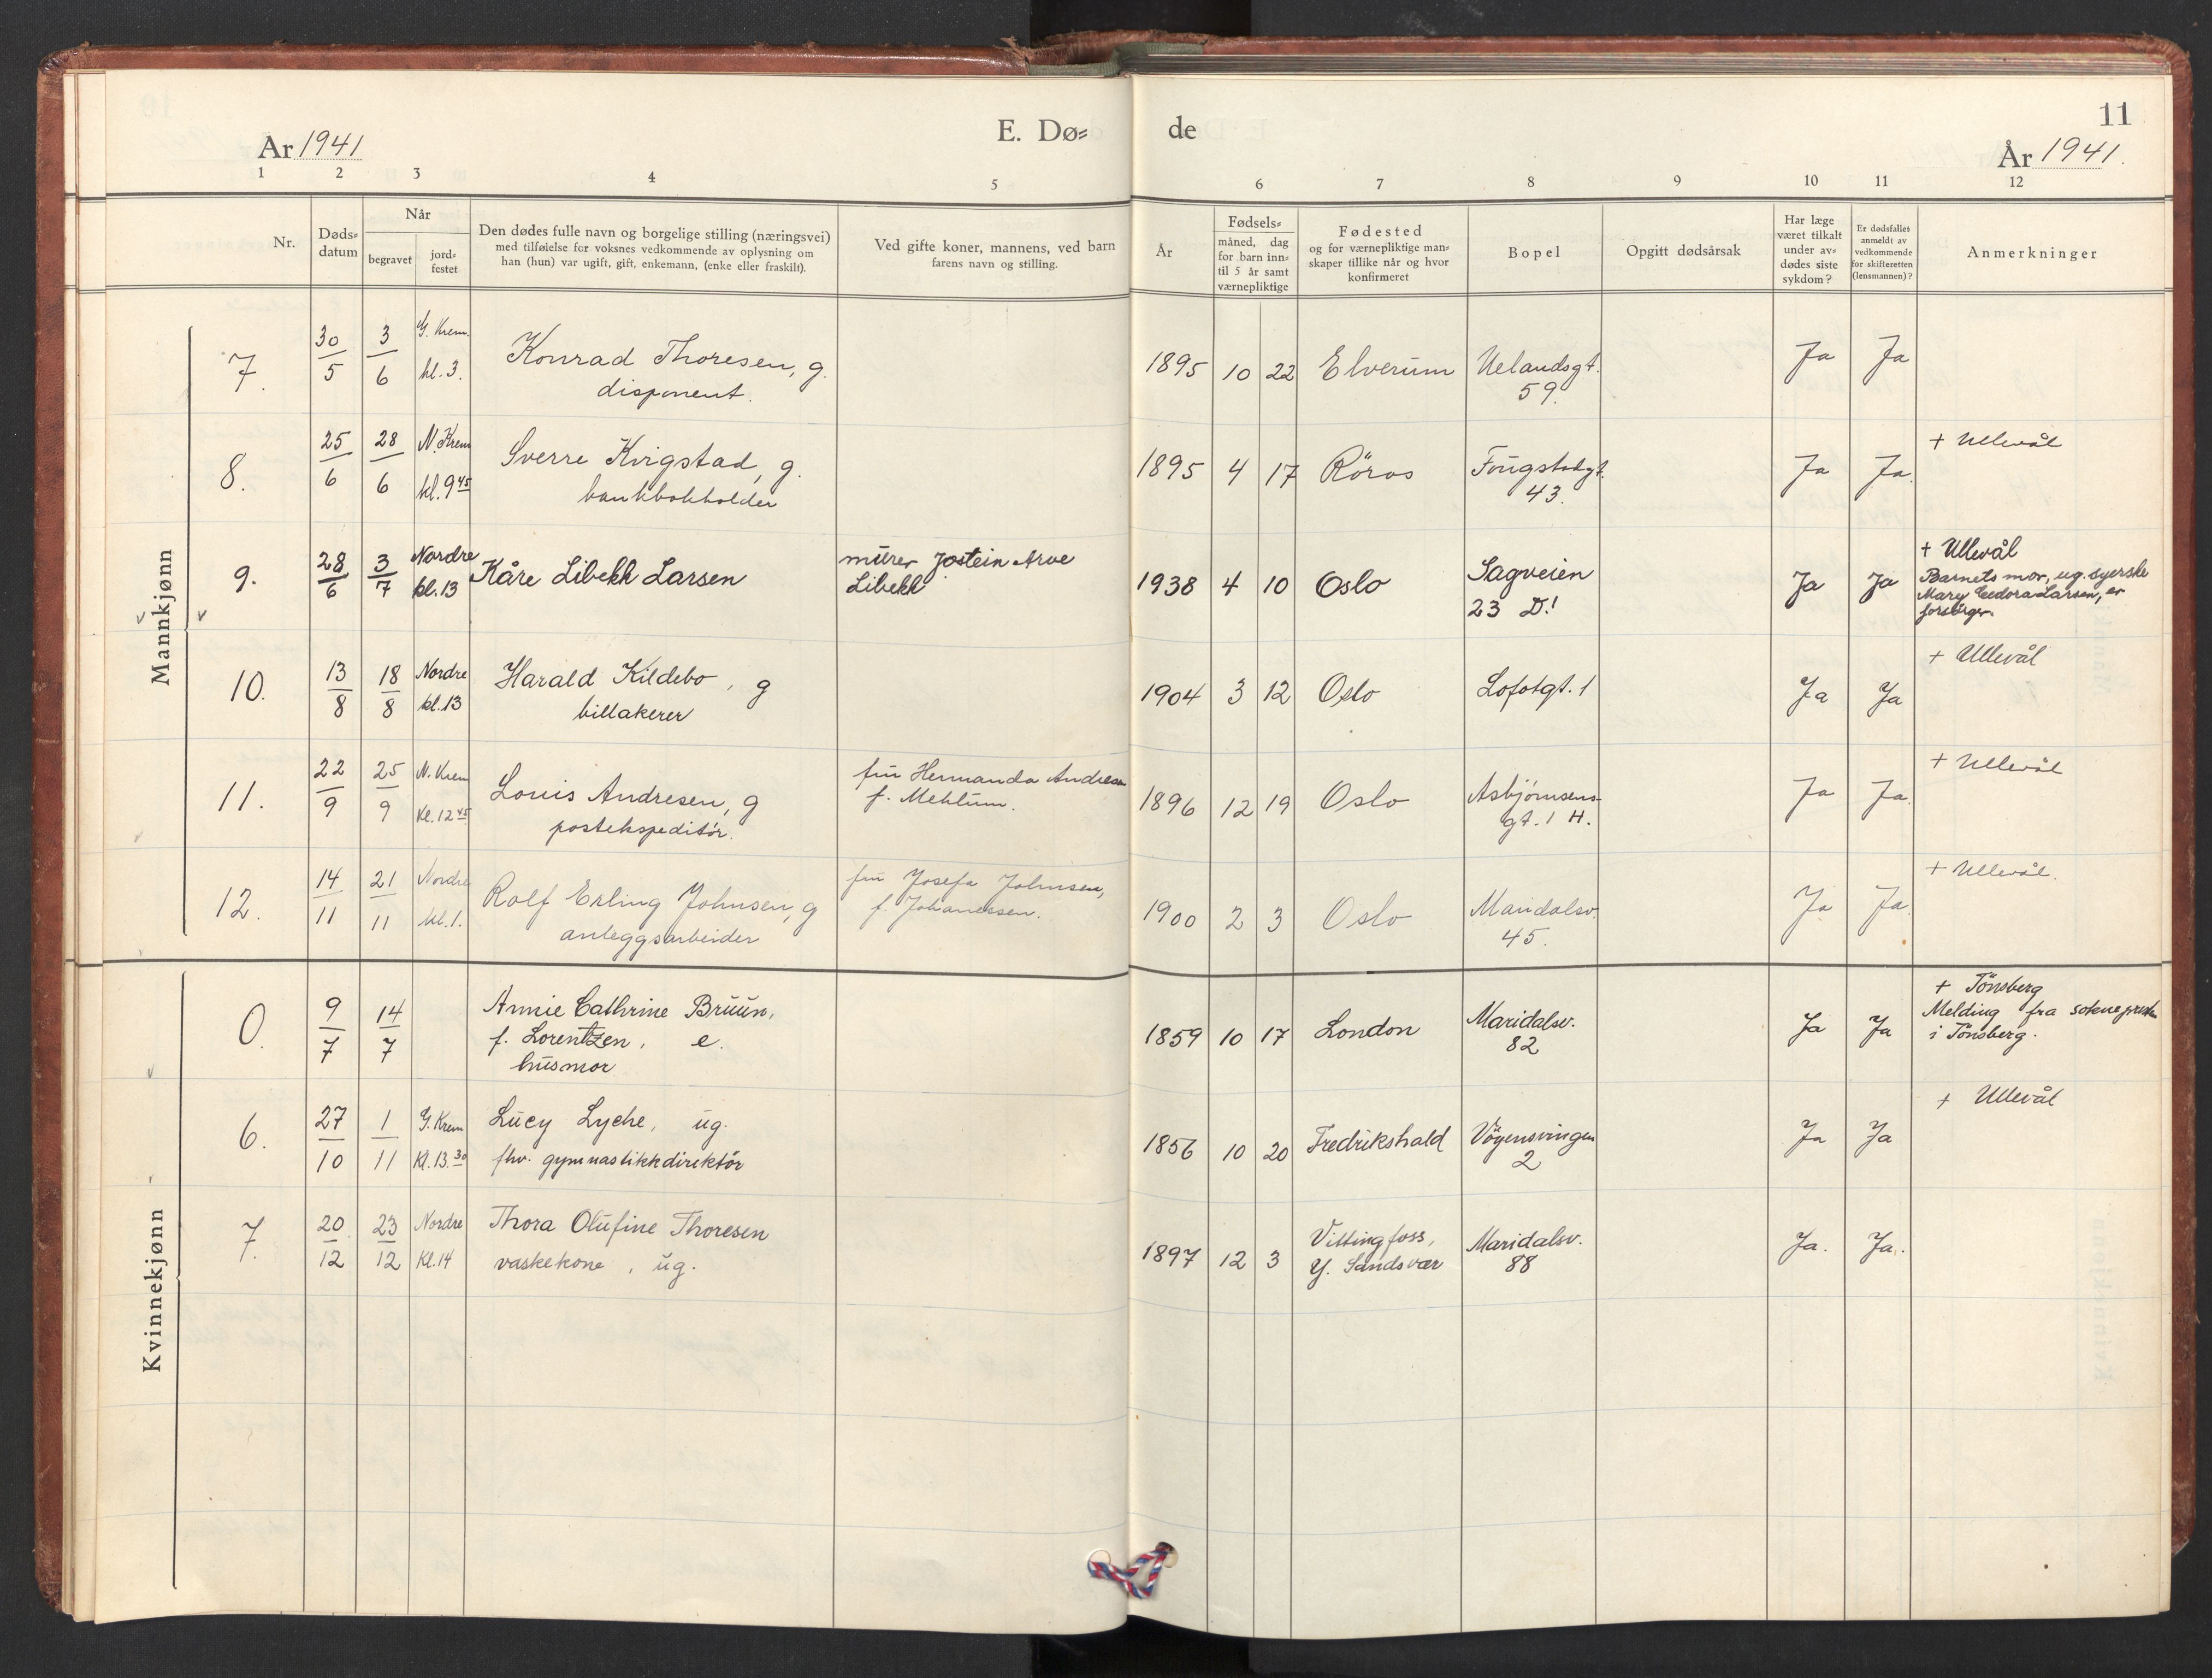 År 1941
E. Dø=
de
11
År 1941.
1 2 3 4 5 6 7 8 9 10 11 12
Nr.
Døds=
datum
Når
begravet
jord=
festet
Den dødes fulle navn og borgelige stilling (næringsvei)
med tilføielse for voksnes vedkommende av oplysning om
han (hun) var ugift, gift, enkemann, (enke eller fraskilt).
Ved gifte koner, mannens, ved barn
farens navn og stilling.
År
Fødsels=
måned, dag
for barn inn=
til 5 år samt
værnepliktige
Fødested
og for værnepliktige man=
skaper tillike når og hvor
konfirmeret
Bopel
Opgitt dødsårsak
Har læge
været tilkalt
under av=
dødes siste
sykdom?
Er dødsfallet
anmeldt av
vedkommende
for skifteretten
(lensmannen)?
Anmerkninger
Mannkjønn
7. 30/5 3/6 G. Krem. kl. 3. Konrad Thoresen, g.
disponent.
1895 10 22 Elverum Uelandsgt.
59.
Ja Ja
8. 25/6 28/6 N. Krem kl. 9 45 Sverre Kvigstad, g.
bankbokholder
1895 4 17 Röros Fougstadgt.
43.
Ja Ja.
+ Ullevål
9. 28/6 3/7 Nordre kl. 13 Kåre Libekk Larsen
murer Jostein Arve
Libekk
1938 4 10 Oslo Sagveien
23 D!
Ja Ja
+ Ullevål
Barnets mor, ug. syerske
Mary Larsen, er
forsörger.
10. 13/8 18/8 Nordre kl. 13 Harald Kildebo, g
billakerer
1904 3 12 Oslo Lofotgt. 1
Ja Ja
+ Ullevål
11. 22/9 25/9 N. Krem Kl. 12 45 Louis Andresen, g
postekspeditör.
fru Hermanda Andresen
f. Mehlum.
1896 12 19 Oslo Asbjörnsens-
gt. 1 H.
Ja Ja.
+ Ullevål
12. 14/11 21/11 Nordre kl. 1. Rolf Erling Johnsen, g
anleggsarbeider
fru Josefa Johnsen,
f. Johanessen.
1900 2 3 Oslo Maridalsv.
45.
Ja Ja.
+ Ullevål.
Kvinnekjønn
0. 9/7 14/7 Annie Cathrine Bruun,
f. Lorentzen, e.
husmor
1859 10 17 London Maridalsv.
82
Ja Ja
+ Tönsberg
Melding fra soknepresten
i Tönsberg.
6. 27/10 1/11 G. Krem Kl. 13. 30 Lucy Lyche, ug.
fhv. gymnastikkdirektör
1856 10 20 Fredrikshald Vöyensvingen
2
Ja Ja
+ Ullevål
7. 20/12 23/12 Nordre Kl. 14 Thora Olufine Thoresen
vaskekone, ug.
1897 12 3 Vittingfoss,
Y. Sandsvær
Maridalsv.
88
Ja. Ja.